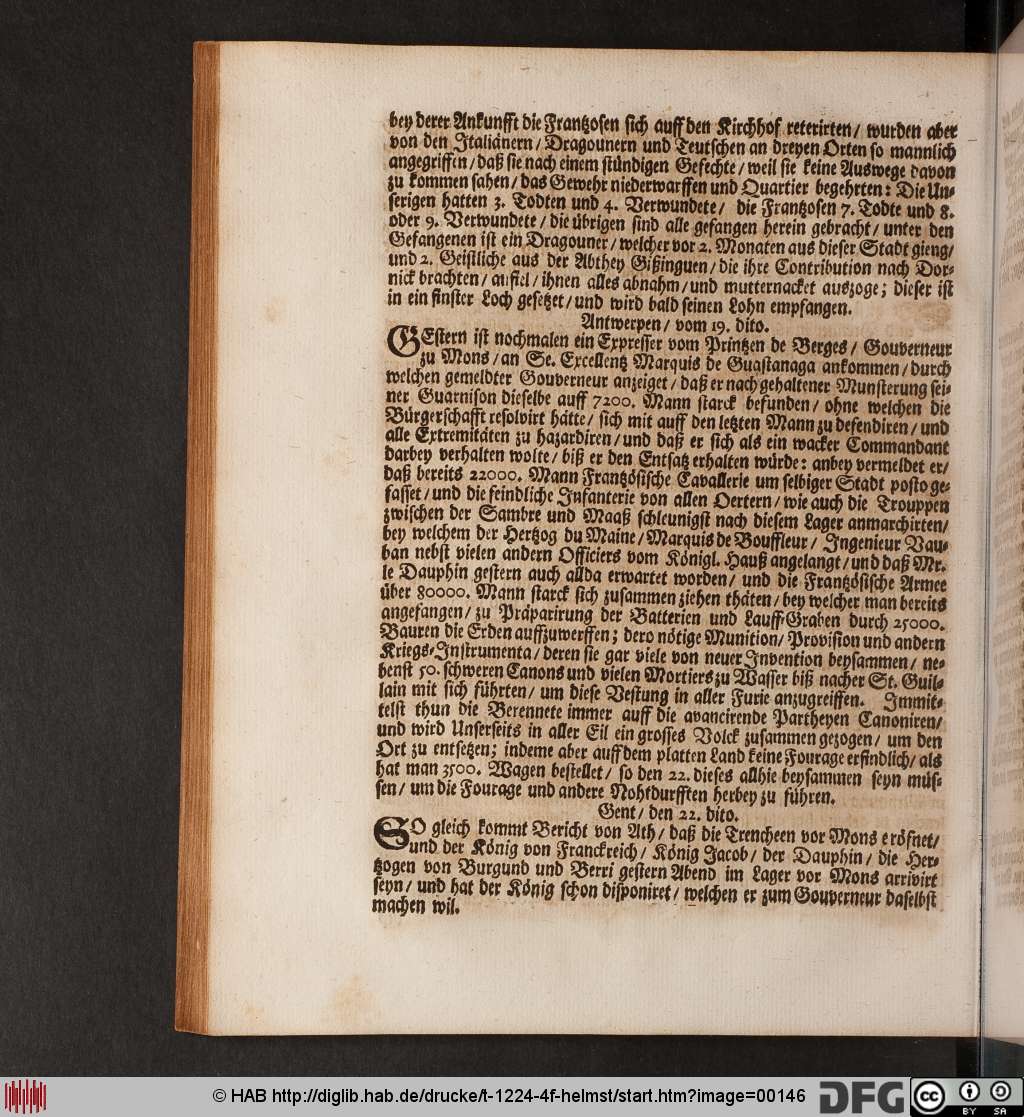 bey derer Ankunfft die Frantzosen sich auff den Kirchhof reterirten/ wurden aber
von den Italiänern/ Dragounern und Teutschen an dreyen Orten so mannlich
angegriffen/ daß sie nach einem stündigen Gefechte/ weil sie keine Auswege davon
zu kommen sahen/ das Gewehr niederwarffen und Quartier begehrten: Die Un-
serigen hatten 3. Todten und 4. Verwundete/ die Frantzosen 7. Todte und 8.
oder 9. Verwundete/ die übrigen sind alle gefangen herein gebracht/ unter den
Gefangenen ist ein Dragouner/ welcher vor 2. Monaten aus dieser Stadt gieng/
und 2. Geistliche aus der Abthey Gißinguen/ die ihre Contribution nach Dor-
nick brachten/ anfiel/ ihnen alles abnahm/ und mutternacket auszoge; dieser ist
in ein finster Loch gesetzet/ und wird bald seinen Lohn empfangen.
Antwerpen/ vom 19. dito.
GEstern ist nochmalen ein Expresser vom Printzen de Berges/ Gouverneur
zu Mons/ an Se. Excellentz Marquis de Guastanaga ankommen/ durch
welchen gemeldter Gouverneur anzeiget/ daß er nach gehaltener Munsterung sei-
ner Guarnison dieselbe auff 7200. Mann starck befunden/ ohne welchen die
Bürgerschafft resolvirt hätte/ sich mit auff den letzten Mann zu defendiren/ und
alle Extremitäten zu hazardiren/ und daß er sich als ein wacker Commandant
darbey verhalten wolte/ biß er den Entsatz erhalten würde: anbey vermeldet er/
daß bereits 22000. Mann Frantzösische Cavallerie um selbiger Stadt posto ge-
fasset/ und die feindliche Infanterie von allen Oertern/ wie auch die Trouppen
zwischen der Sambre und Maaß schleunigst nach diesem Lager anmarchirten/
bey welchem der Hertzog du Maine/ Marquis de Bouffleur/ Ingenieur Vau-
ban nebst vielen andern Officiers vom Königl. Hauß angelangt/ und daß Mr.
le Dauphin gestern auch allda erwartet worden/ und die Frantzösische Armee
über 80000. Mann starck sich zusammen ziehen thäten/ bey welcher man bereits
angefangen/ zu Präparirung der Batterien und Lauff-Graben durch 25000.
Bauren die Erden auffzuwerffen; dero nötige Munition/ Provision und andern
Kriegs-Instrumenta/ deren sie gar viele von neuer Invention beysammen/ ne-
benst 50. schweren Canons und vielen Mortiers zu Wasser biß nacher St. Guil-
lain mit sich führten/ um diese Vestung in aller Furie anzugreiffen. Immit-
telst thun die Berennete immer auff die avancirende Partheyen Canoniren/
und wird Unserseits in aller Eil ein grosses Volck zusammen gezogen/ um den
Ort zu entsetzen; indeme aber auff dem platten Land keine Fourage erfindlich/ als
hat man 3500. Wagen bestellet/ so den 22. dieses allhie beysammen seyn müs-
sen/ um die Fourage und andere Nohtdurfften herbey zu führen.
Gent/ den 22. dito.
SO gleich kommt Bericht von Ath/ daß die Trencheen vor Mons eröfnet/
und der König von Franckreich/ König Jacob/ der Dauphin/ die Her-
tzogen von Burgund und Berri gestern Abend im Lager vor Mons arrivirt
seyn/ und hat der König schon disponiret/ welchen er zum Gouverneur daselbst
machen wil.
© HAB http://diglib.hab.de/drucke/t-1224-4f-helmst/start.htm?image=00146
DFG
cc
BY SA